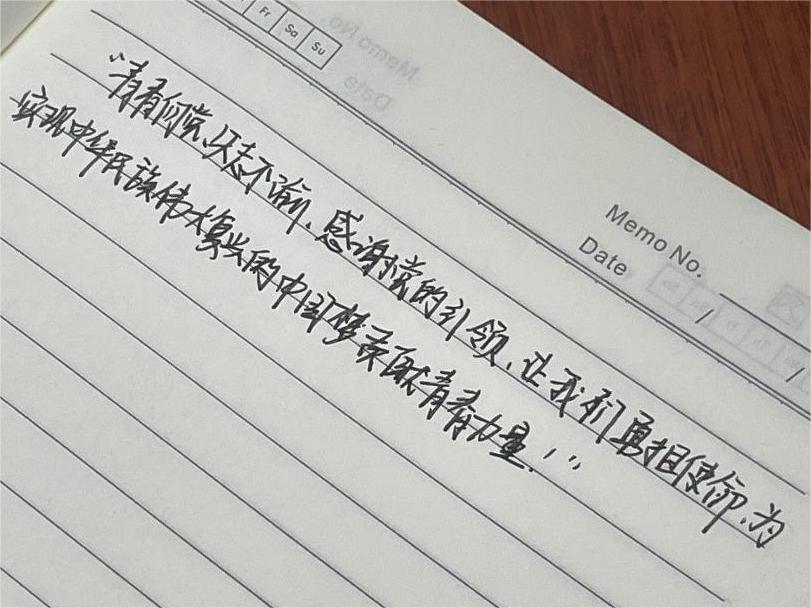 Fr Sa Su
Memo No.
Date / /
“青春向党,矢志不渝,感谢党的引领,让我们勇担使命,为
实现中华民族伟大复兴的中国梦贡献青春力量!”
Memo No.
Date